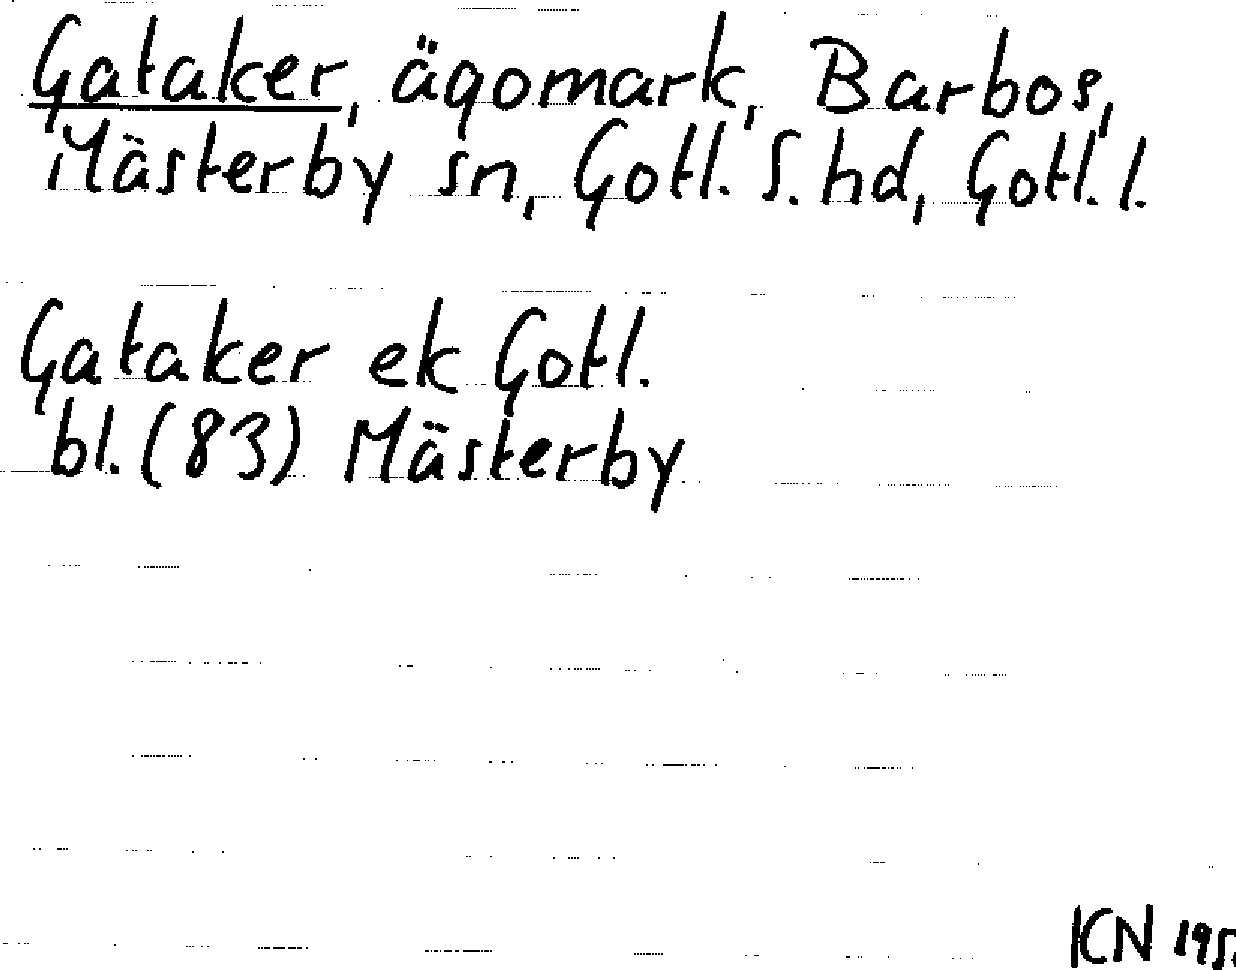 Gataker, ägomark, Barbos,
Mästerby sn, Gotl. S. hd, Gotl. l.
Gataker ek Gotl.
bl. (83) Mästerby
ICN